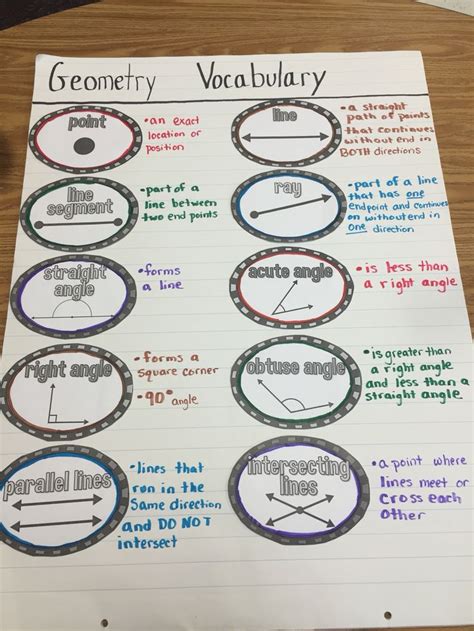 Geometry Vocabulary
point
•an exact
location or
position
line
•a straight
path of points
that continues
without end in
BOTH directions
line
segment
•part of a
line between
two end points
ray
•part of a line
that has one
endpoint and continues
on without end in
one direction
straight
angle
•forms
a line
acute angle
•is less than
a right angle
right angle
•forms a
square corner
•90° angle
obtuse angle
•is greater than
a right angle
and less than a
straight angle
parallel lines
•lines that
run in the
same direction
and DO NOT
intersect
intersecting
lines
•a point where
lines meet or
cross each
other